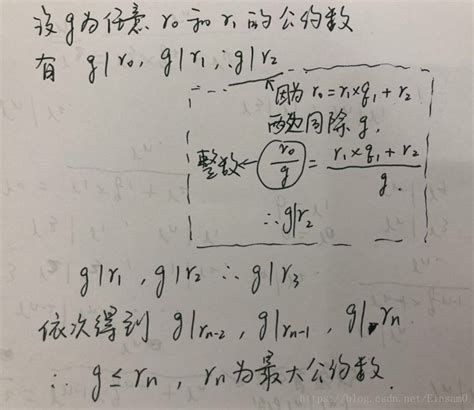 设g为任意 r₀ 和 r₁ 的公约数
有 g|r₀, g|r₁, ∴g|r₂
因为 r₀=r₁×q₁+r₂
两边同除 g.
整数← r₀/g = (r₁×q₁+r₂)/g.
∴g|r₂
g|r₁, g|r₂ ∴ g|r₃
依次得到 g|rₙ₋₂, g|rₙ₋₁, g|rₙ
∴ g≤rₙ, rₙ为最大公约数.
https://blog.csdn.net/Einsam0